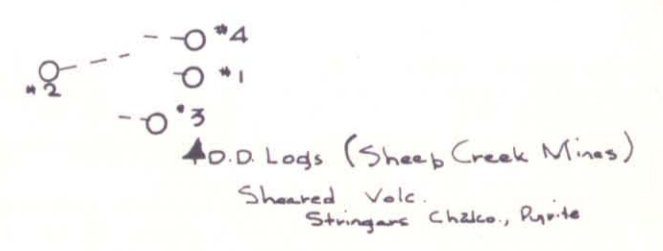 #4
#1
#2
#3
D.D. Logs (Sheep Creek Mines)
Sheared Volc.
Stringers Chalco., Pyrite